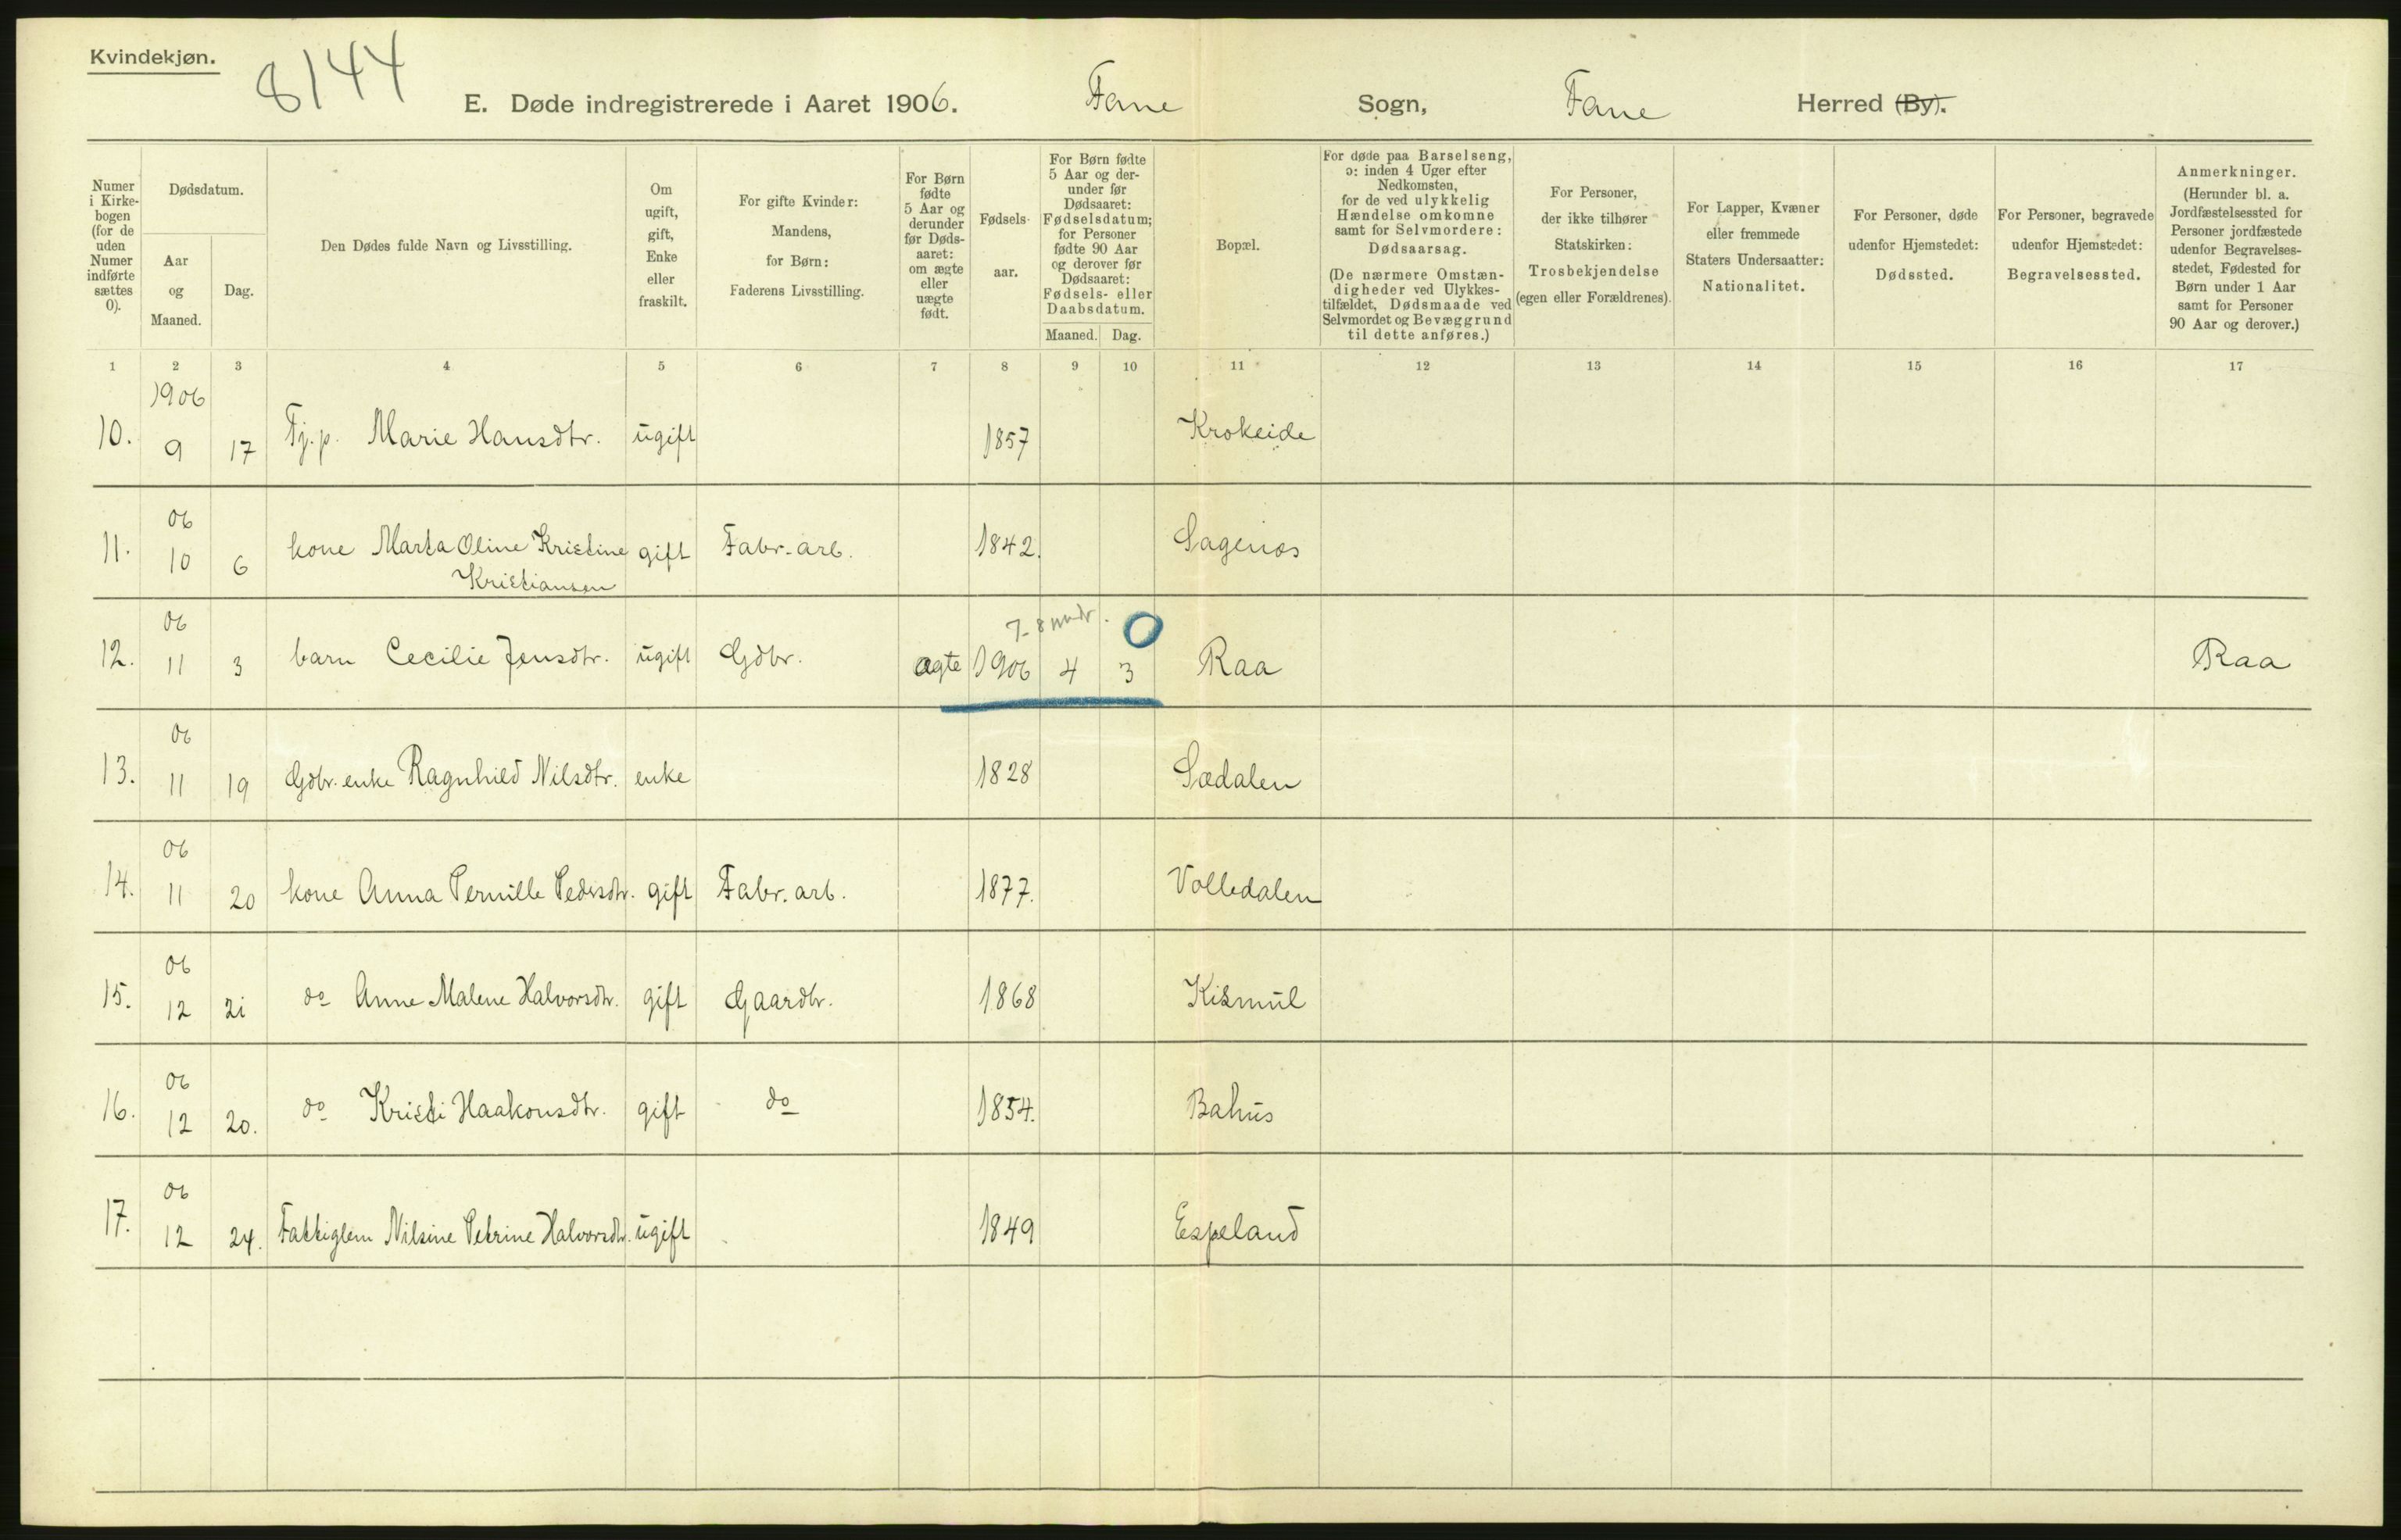 Kvindekjøn.
8144
E. Døde indregistrerede i Aaret 1906. Fane Sogn, Fane Herred (By).
Numer
i Kirke-
bogen
(for de
uden
Numer
indførte
sættes
0).
Dødsdatum.
Aar
og
Maaned.
Dag.
Den Dødes fulde Navn og Livsstilling.
Om
ugift,
gift,
Enke
eller
fraskilt.
For gifte Kvinder:
Mandens,
for Børn:
Faderens Livsstilling.
For Børn
fødte
5 Aar og
derunder
før Døds-
aaret:
om ægte
eller
uægte
født.
Fødsels-
aar.
For Børn fødte
5 Aar og der-
under før
Dødsaaret:
Fødselsdatum;
for Personer
fødte 90 Aar
og derover før
Dødsaaret:
Fødsels- eller
Daabsdatum.
Maaned. Dag.
Bopæl.
For døde paa Barselseng,
ɔ: inden 4 Uger efter
Nedkomsten,
for de ved ulykkelig
Hændelse omkomne
samt for Selvmordere:
Dødsaarsag.
(De nærmere Omstæn-
digheder ved Ulykkes-
tilfældet, Dødsmaade ved
Selvmordet og Bevæggrund
til dette anføres.)
For Personer,
der ikke tilhører
Statskirken:
Trosbekjendelse
(egen eller Forældrenes).
For Lapper, Kvæner
eller fremmede
Staters Undersaatter:
Nationalitet.
For Personer, døde
udenfor Hjemstedet:
Dødssted.
For Personer, begravede
udenfor Hjemstedet:
Begravelsessted.
Anmerkninger.
(Herunder bl. a.
Jordfæstelsessted for
Personer jordfæstede
udenfor Begravelses-
stedet, Fødested for
Børn under 1 Aar
samt for Personer
90 Aar og derover.)
1 2 3 4 5 6 7 8 9 10 11 12 13 14 15 16 17
1906
10. 9 17 Tj.p. Marie Hansdtr. ugift 1857 Krokeide
06
11. 10 6 kone Marta Oline Kristine gift Fabr. arb. 1842. Sagenos
Kristiansen
06 7-8 mndr. 0
12. 11 3 barn Cecilie Jensdtr. ugift Gdbr. ægte 1906 4 3 Raa Raa
06
13. 11 19 Gdbr. enke Ragnhild Nilsdtr. enke 1828 Sædalen
06
14. 11 20 kone Anna Pernille Pedersdtr. gift Fabr. arb. 1877. Volledalen
06
15. 12 21 do Anne Malene Halvorsdtr. gift Gaardbr. 1868 Kismul
06
16. 12 20. do Kristi Haakonsdtr. gift do 1854. Bahus
06
17. 12 24. Fattiglem Nilsine Petrine Halvorsdtr. ugift 1849 Espeland